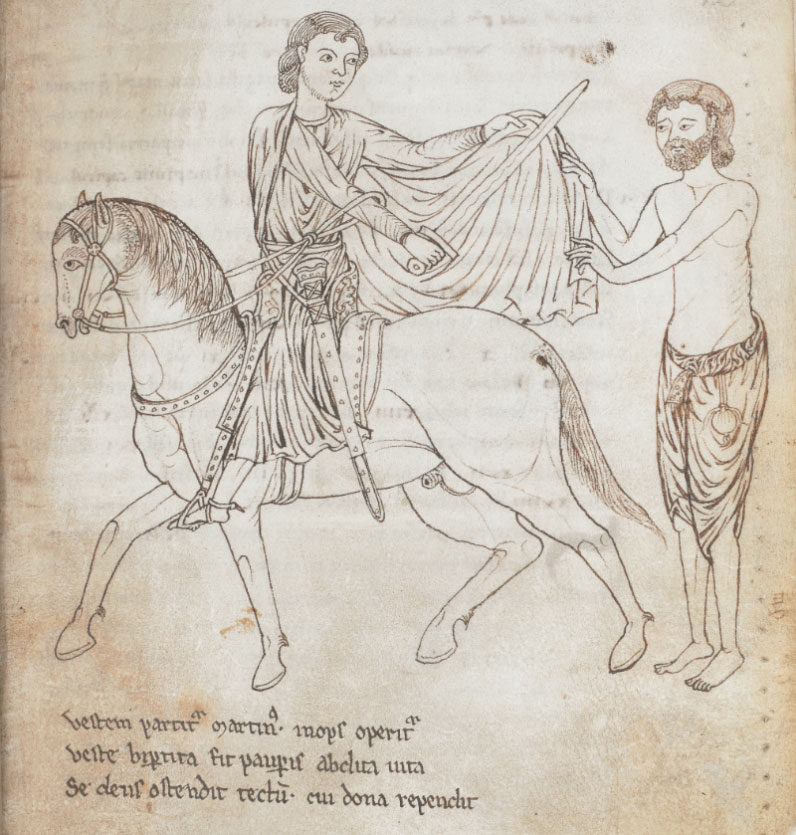 vestem partit᷑ martin᷒· inops operit᷑
veste bip̱tita fit paup̱is abdita uita
Se deus ostendit tectū· cui dona rependit